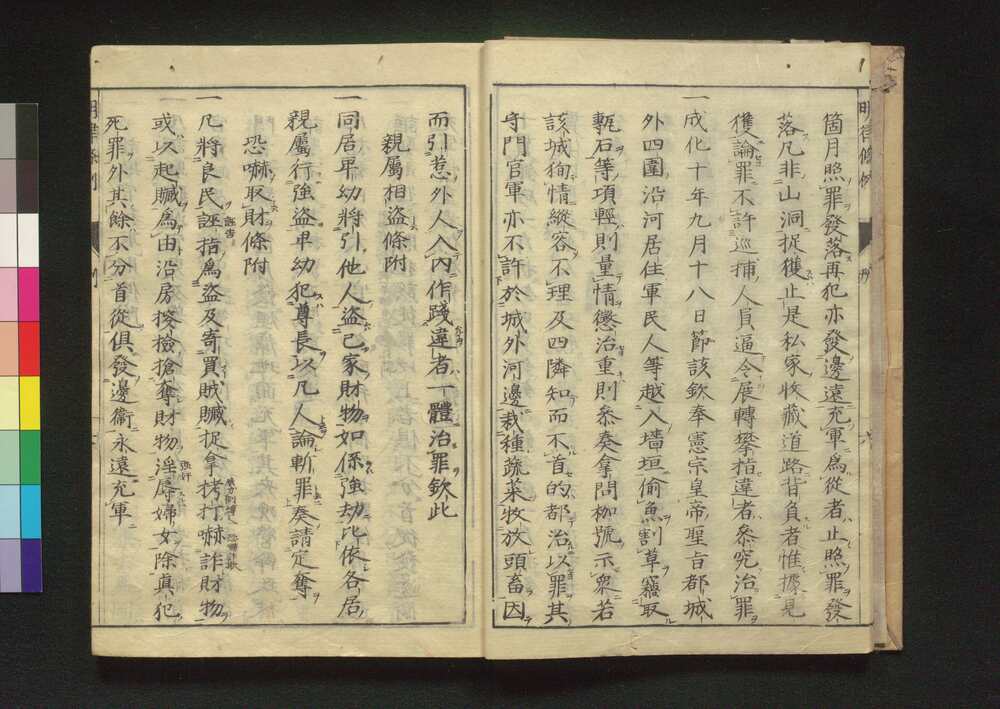 箇月照罪發落再犯亦發邊遠充軍爲從者止照罪發
落凡非山洞捉獲止是私家收藏道路背負者惟據見
獲論罪不許巡捕人員逼令展轉攀指違者參究治罪
一成化十年九月十八日節該欽奉憲宗皇帝聖旨都城
外四圍沿河居住軍民人等越入墻垣偷魚割草竊取
甎石等項輕則量情懲治重則參奏拿問枷號示衆若
該城徇情縱容不理及四隣知而不首的都治以罪其
守門官軍亦不許於城外河邊栽種蔬菜牧放頭畜因
而引惹外人入內作踐違者一體治罪欽此
親屬相盜條附
一同居卑幼將引他人盜己家財物如係強劫比依各居
親屬行強盜卑幼犯尊長以凡人論斬罪奏請定奪
恐嚇取財條附
一凡將良民誣指爲盜及寄買賊贓捉拿拷打嚇詐財物
或以起贓爲由沿房搜檢搶奪財物淫辱婦女除眞犯
死罪外其餘不分首從俱發邊衞永遠充軍
明律條例